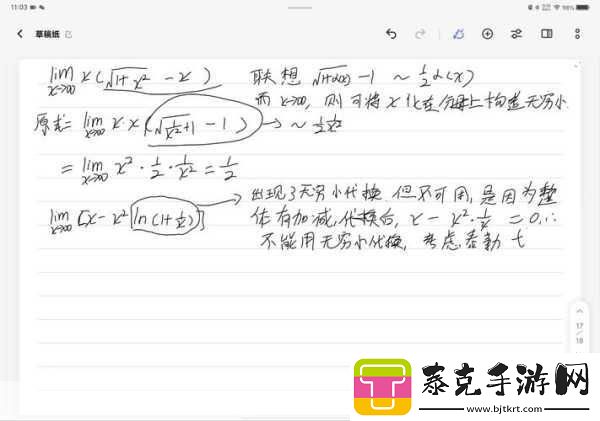 11:03
98%
草稿纸
lim x→∞ x(√1+x² - x) 联想 √1+α(x) -1 ~ ½α(x)
而 x→∞, 则可将 x 化在分母上构造无穷小
原式= lim x→∞ x·x(√1/x²+1 - 1) → ~ ½ 1/x²
= lim x→∞ x²·½·1/x² = ½
lim x→∞ [x - x² ln(1+1/x)] → 出现了无穷小代换 但不可用, 是因为整
体有加减, 代换后, x - x²·1/x = 0, ∴
不能用无穷小代换, 考虑泰勒 t
17
18
泰克手游网
www.bjtkrt.com